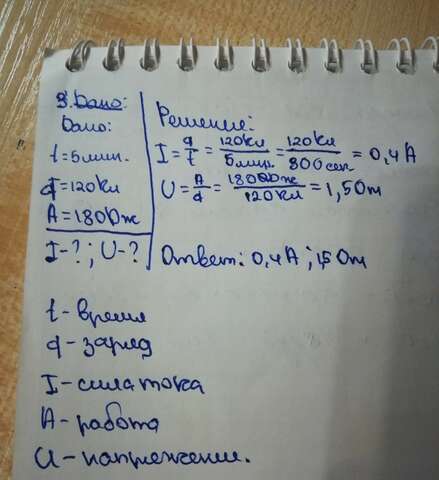 3. Дано:
Дано:
t=5мин.
q=120Кл
A=180Дж
I-?; U-?
Решение:
I = q/t = 120Кл/5мин. = 120Кл/300сек = 0,4А
U = A/q = 180Дж/120Кл = 1,5Om
Ответ: 0,4А; 1,5Om
t - время
q - заряд
I - сила тока
A - работа
U - напряжении.